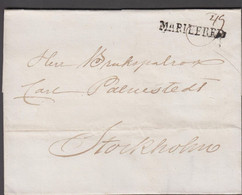 4/9
MARIEFRED
Herr Brukspatron
Carl Palmstedt
Stockholm